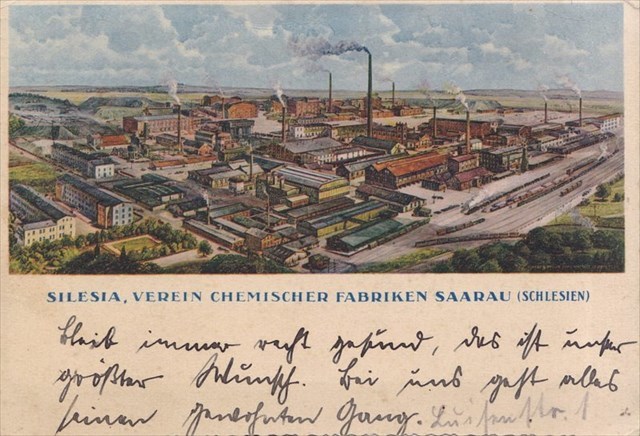 SILESIA, VEREIN CHEMISCHER FABRIKEN SAARAU (SCHLESIEN)
Bleib immer recht gesund, das ist unser
größter Wunsch. Bei uns geht alles
seinen gewohnten Gang. Luisenstr. 1